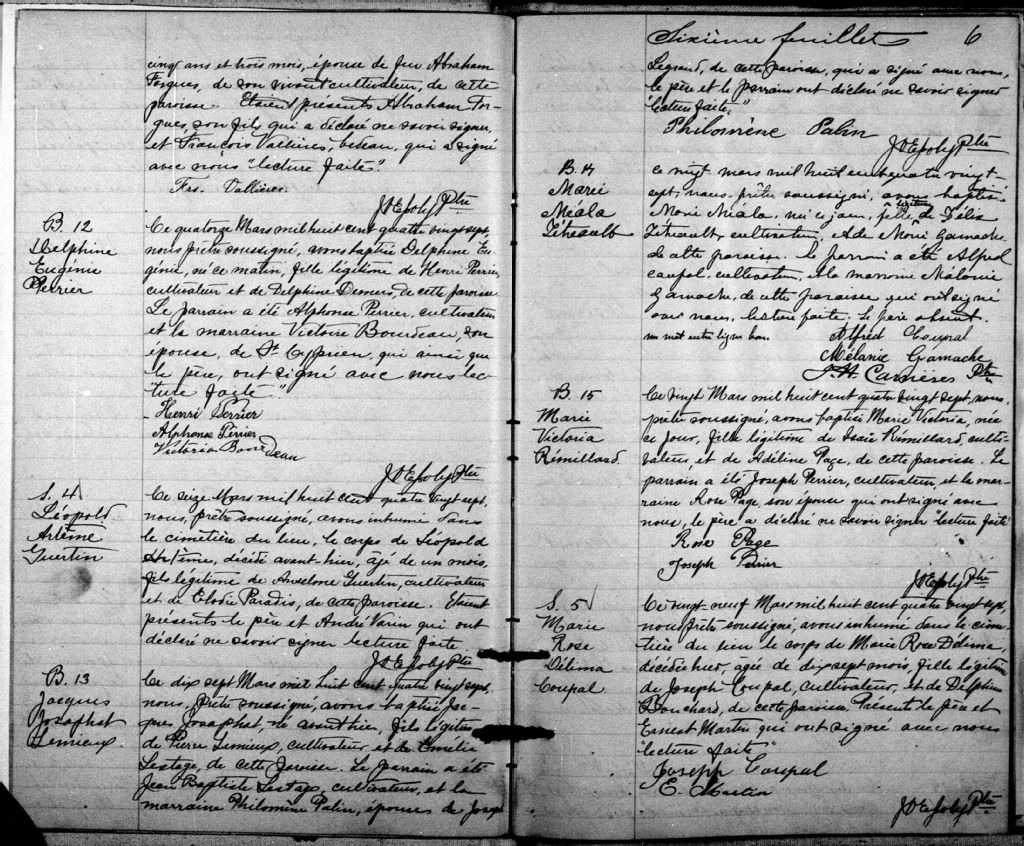 cinq ans et trois mois, épouse de feu Abraham
Forgues, de son vivant cultivateur, de cette
paroisse. Etaient présents Abraham For-
gues, son fils, qui a déclaré ne savoir signer,
et François Vallières, bedeau, qui a signé
avec nous "lecture faite."
Frs. Vallières
JOEJoly Ptre
B. 12
Delphine
Eugénie
Perrier
Ce quatorze Mars mil huit cent quatre vingt sept,
nous prêtre soussigné, avons baptisé Delphine Eu
génie, né ce matin, fille légitime de Henri Perrier,
cultivateur et de Delphine Demers, de cette paroisse.
Le parrain a été Alphonse Perrier, cultivateur
et la marraine Victoire Bourdeau, son
épouse, de St Cyprien, qui ainsi que
le père, ont signé avec nous lec-
ture faite."
Henri Perrier
Alphonse Perrier
Victoria Bourdeau
JOEJoly Ptre
S. 4
Léopold
Artème
Guertin
Ce seize Mars mil huit cent quatre vingt sept,
nous, prêtre soussigné, avons inhumé dans
le cimetière du lieu, le corps de Léopold
Artème, décédé avant hier, âgé de un mois,
fils légitime de Anselme Guertin, cultivateur
et de Elodie Paradis, de cette paroisse. Etaient
présents le père et André Varin qui ont
déclaré ne savoir signer lecture faite
JOEJoly Ptre
B. 13
Jacques
Josaphat
Lemieux
Ce dix sept Mars mil huit cent quatre vingt sept,
nous, prêtre soussigné, avons baptisé Jac-
ques Josaphat, né avant hier, fils légitime
de Pierre Lemieux, cultivateur et de Amélie
Lestage, de cette paroisse. Le parrain a été
Jean Baptiste Lestage, cultivateur, et la
marraine Philomène Palin, épouse de Joseph
Sixième feuillet 6
Legrand, de cette paroisse, qui a signé avec nous,
le père et le parrain ont déclaré ne savoir signer
"lecture faite,"
Philomène Palin
JOEJoly Ptre
B. 14
Marie
Méala
Tétreault
Ce vingt mars mil huit cent quatre vingt-
sept, nous, prêtre soussigné, avons baptisé
Marie Méala, née ce jour, fille légitime de Délis
Tétreault, cultivateur, & de Marie Gamache
de cette paroisse. Le parrain a été Alfred
Coupal, cultivateur, et la marraine Mélanie
Gamache, de cette paroisse qui ont signé
avec nous, lecture faite. Le père absent.
un mot entre ligne bon.
Alfred Coupal
Mélanie Gamache
J. H. Carrières Ptre
B. 15
Marie
Victoria
Rémillard
Ce vingt Mars mil huit cent quatre vingt sept, nous,
prêtre soussigné, avons baptisé Marie Victoria, née
ce jour, fille légitime de Isaïe Rémillard, culti-
vateur, et de Adéline Page, de cette paroisse. Le
parrain a été Joseph Perrier, cultivateur, et la mar-
raine Rose Page son épouse qui ont signé avec
nous, le père a déclaré ne savoir signer "lecture faite
Rose Page
Joseph Perrier
JOEJoly Ptre
S. 5
Marie
Rose
Délima
Coupal
Ce vingt-neuf Mars mil huit cent quatre vingt sept,
nous prêtre soussigné, avons inhumé dans le cime-
tière du lieu le corps de Marie Rose Délima,
décédée hier, agée de dix sept mois, fille légitime
de Joseph Coupal, cultivateur, et de Delphine
Bouchard, de cette paroisse. Présent le père et
Ernest Martin qui ont signé avec nous
"lecture faite"
Joseph Coupal
E. Martin
JOEJoly Ptre